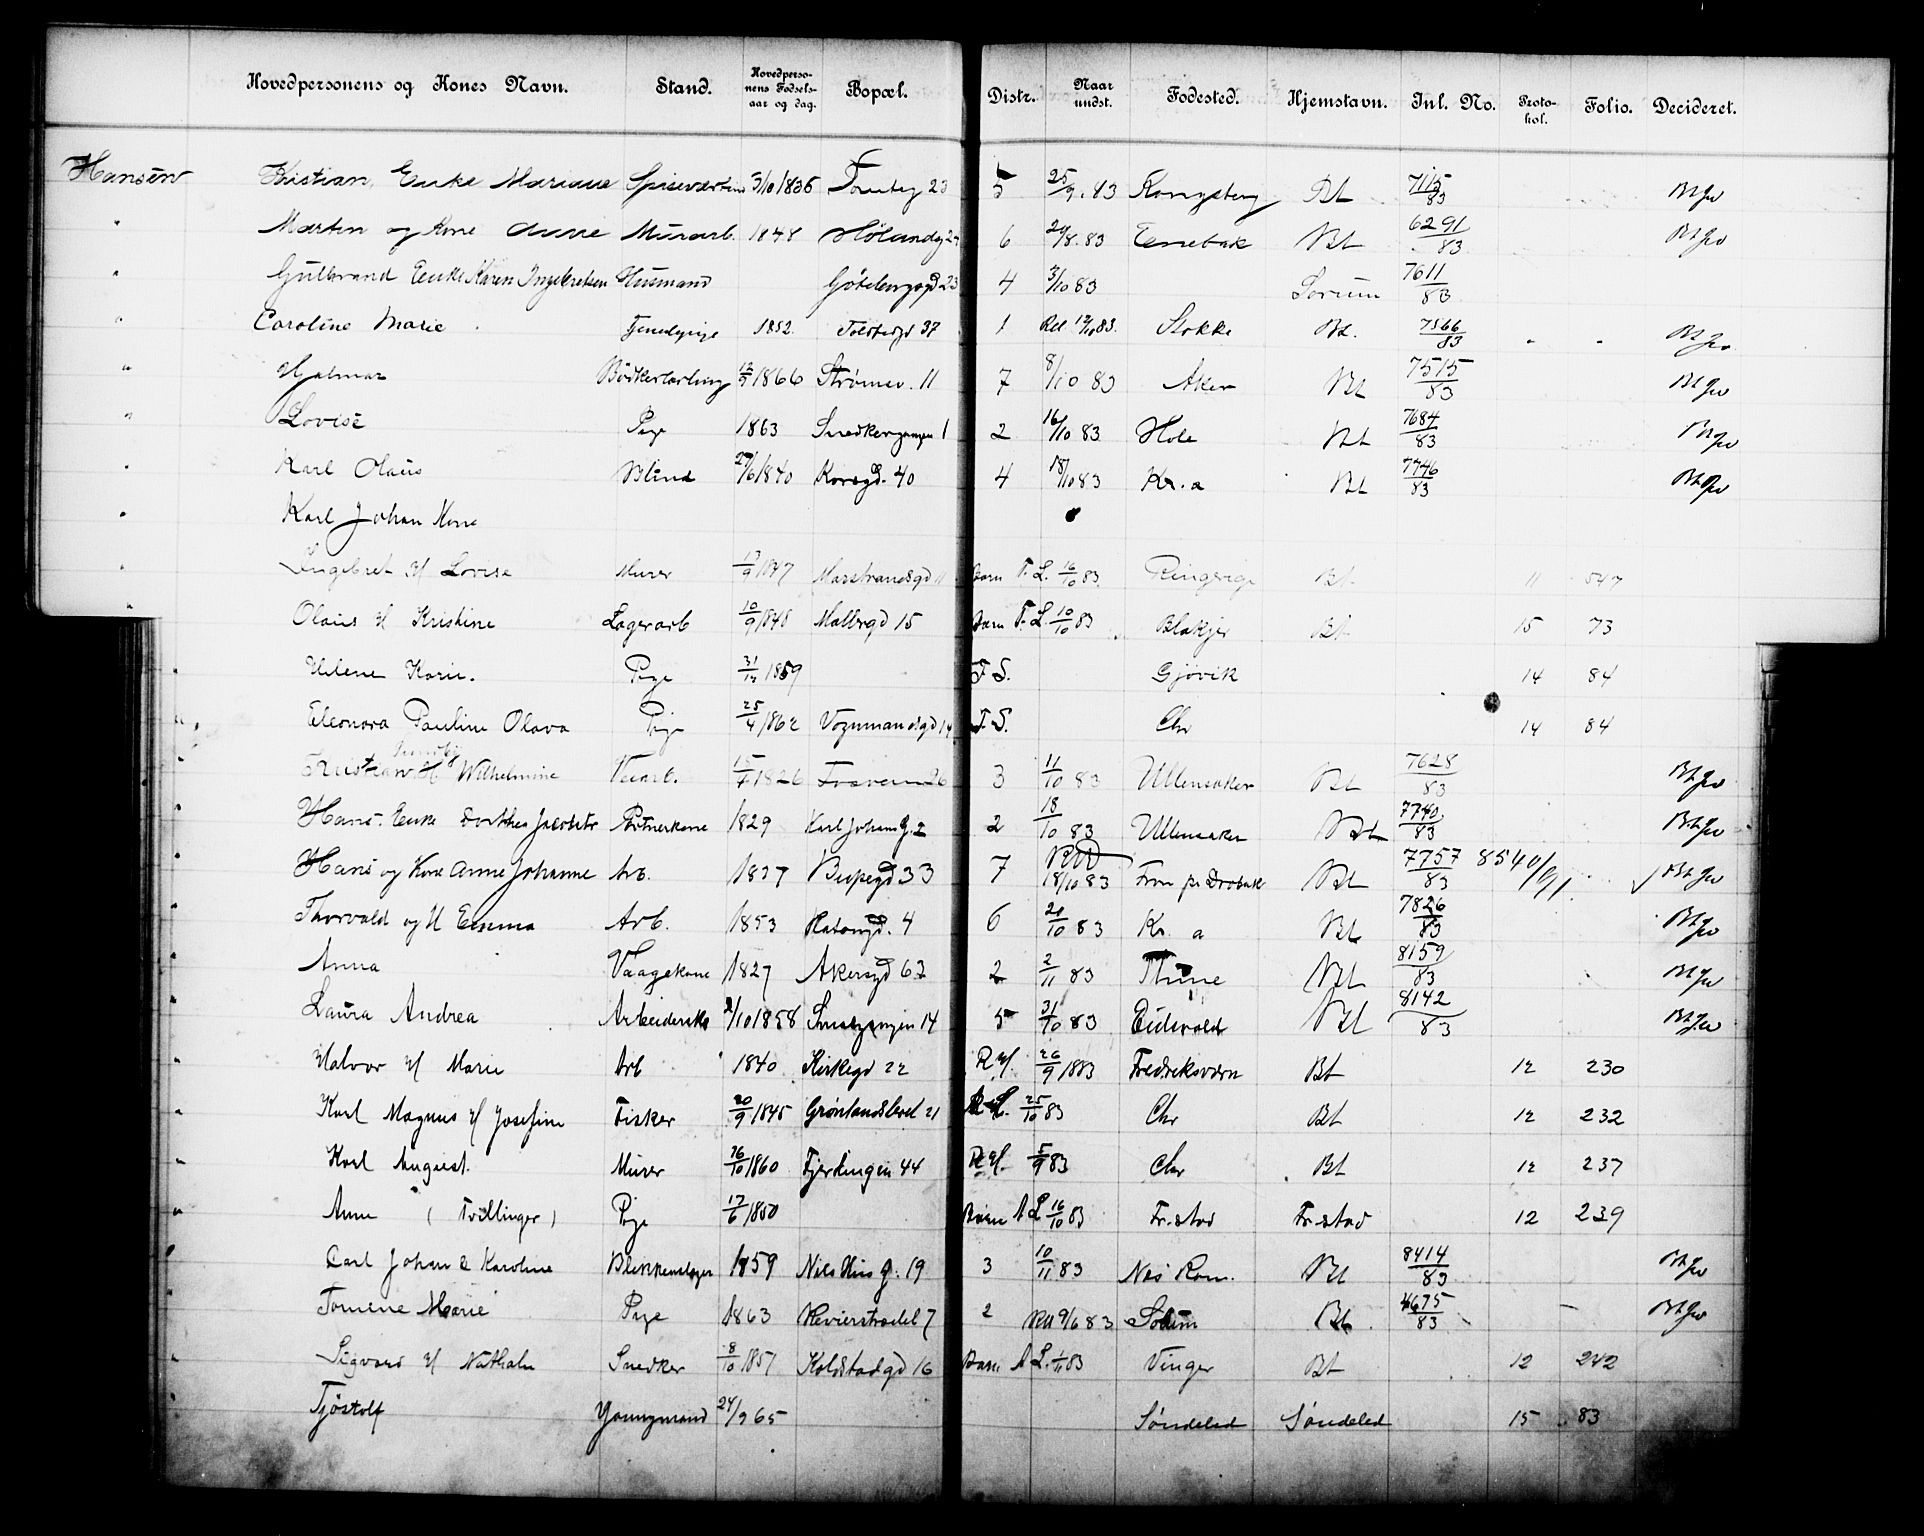 Hovedpersonens og Kones Navn. Stand. Hovedpersonens Fødselsaar og dag. Bopæl. Distr. Naar undst. Fødested. Hjemstavn. Inl. No. Protokol. Folio. Decideret.
Hansen Kristian, Enke Mariane 3/10 1836 23 5 25/9 83 Kongsberg Bt 7115/83
" Martin og Kone Anne Murarb. 1848 Hølandg 6 29/8 83 Enebak Bt 6291/83
" Gulbrand Enke Karen Ingebretsen Husmand Gøteborggd 23 4 3/10 83 Sørum 7611/83
" Caroline Marie Tjenestepige 1852 Toldbodgd 37 1 12/10 83 Stokke Bt. 7566/83 " "
" Hjalmar Bødkerlærling 12/9 1866 Strømsv. 11 7 8/10 83 Aker Bt 7515/83
" Lovise Pige 1863 Snedkergangen 1 2 16/10 83 Hole Bt 7684/83
" Karl Olaus Blind 27/6 1840 Korsgd. 40 4 18/10 83 Kr.a Bt 7746/83
" Karl Johan Kone
" Ingebret H Lovise Murer 13/9 1847 Marstrandsgd 11 Barn F. L. 16/10 83 Ringerige Bt 11 547
" Olaus H Kristine Lagerarb 10/9 1848 Møllergd 15 Barn F. L. 10/10 83 Blakjer Bt 15 73
" Helene Karie. Pige 31/12 1859 F S. Gjøvik 14 84
" Eleonora Pauline Olava Pige 25/4 1862 Vognmandsgd 14 F. S. Chr 14 84
" Kristian H Wilhelmine Veiarb. 15/7 1826 Fossveien 26 3 11/10 83 Ullensaker Bt 7628/83
" Hans. Enke Dorthea Jacobs Portnerkone 1829 Karl Johans g. 2 2 18/10 83 Ullensaker Bt 7740/83
" Hans og Kone Anne Johanne Arb. 1837 Bispegd 33 7 18/10 83 Fron pr Drøbak Bt 7757/83 8540/91
" Thorvald og H Emma Arb. 1853 4 6 20/10 83 Kr. a Bt 7826/83
" Anna Vaagekone 1827 Akersgd 63 2 2/11 83 Thune Bt 8159/83
" Laura Andrea Arbeiderske 2/10 1858 Smedgangen 14 5 31/10 83 Eidsvold Bt 8142/83
" Halvor H Marie Arb 1840 Kirkegd 22 R H. 26/9 1883 Fredriksværn Bt 12 230
" Karl Magnus H Josefine Fisker 20/9 1845 Grønlandsleret 21 25/10 83 Chr Bt 12 232
" Karl August. Murer 26/10 1860 Fjerdingen 44 R H. 5/9 83 Chr Bt 12 237
" Anne (Tvillinger) Pige 17/6 1850 Barn A L 16/10 83 Fr.stad Fr.stad 12 239
" Carl Johan & Karoline Blikkenslager 1859 Nils Hus g. 19 3 10/11 83 Næs Rom. Bt 8414/83
" Tomine Marie Pige 1863 Revierstrædet 7 2 9/6 83 Bt 4675/83
" Sigvard H Nathalie Snedker 8/10 1857 Koldstadgd 16 Barn A L. 1/11 83 Vinger Bt 12 242
" Tjøstolf Youngmand 24/9 65 Søndeled Søndeled 15 83